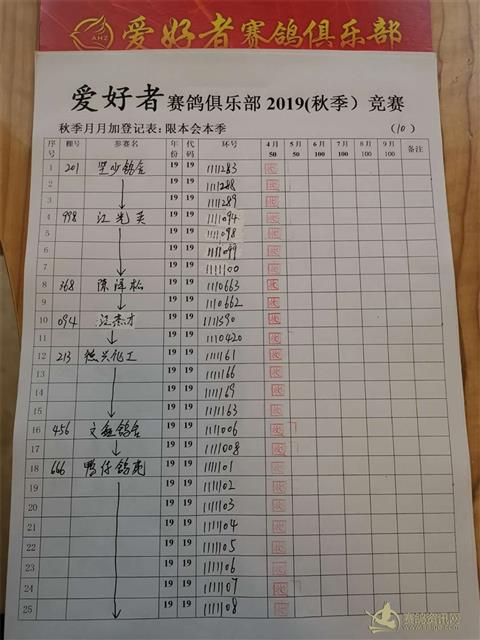 AHZ 爱好者赛鸽俱乐部
爱好者 赛鸽俱乐部 2019(秋季) 竞赛
秋季月月加登记表：限本会本季 (10)
序号 棚号 参赛名 年份 代码 环号 4月50 5月50 6月100 7月100 8月100 9月100 备注
1 201 19 19 1111283 收
2 19 19 1111288 收
3 19 19 1111289 收
4 998 江光英 19 19 1111094 收
5 19 19 1111098 收
6 19 19 1111099 收
7 19 19 1111100 收
8 368 陈泽松 19 19 1110663 收
9 19 19 1110662 收
10 094 江杰才 19 19 1111390 收
11 19 19 1110420 收
12 213 19 19 1111161 收
13 19 19 1111166 收
14 19 19 1111169 收
15 19 19 1111163 收
16 456 19 19 1111006 收
17 19 19 1111008 收
18 666 鸭仔鸽 19 19 1111101 收
19 19 19 1111102 收
20 19 19 1111103 收
21 19 19 1111104 收
22 19 19 1111105 收
23 19 19 1111106 收
24 19 19 1111107 收
25 19 19 1111108 收
赛鸽资讯网